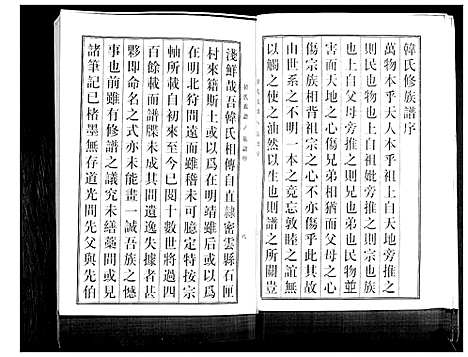 韓氏修族譜序
萬物本乎天人本乎祖上自天地旁推之
則民也物也上自祖妣旁推之則宗也族
也上自父母旁推之則兄也弟也民物並
害而天地之心傷兄弟相猶而父母之心
傷宗族相背祖宗之心不亦傷乎此其故
由世系之不明一本之竟忘敦睦之誼何
以觸之使之油然以生也則譜之所關豈
淺鮮哉吾韓氏相傳自直隸密雲縣石匣
村來籍斯土或以為在明靖難后或以為
在明北狩間遠而難稽未可臆定特按宗
軸所載自初來至今已閱十數世將過四
百餘載而譜牒未成其間遺逸失據者甚
多昭穆之式亦未能畫一誠吾族之憾
事也前雖有修譜之議究未繕藁間或見
諸筆記已楮墨無存道光間先父與先伯